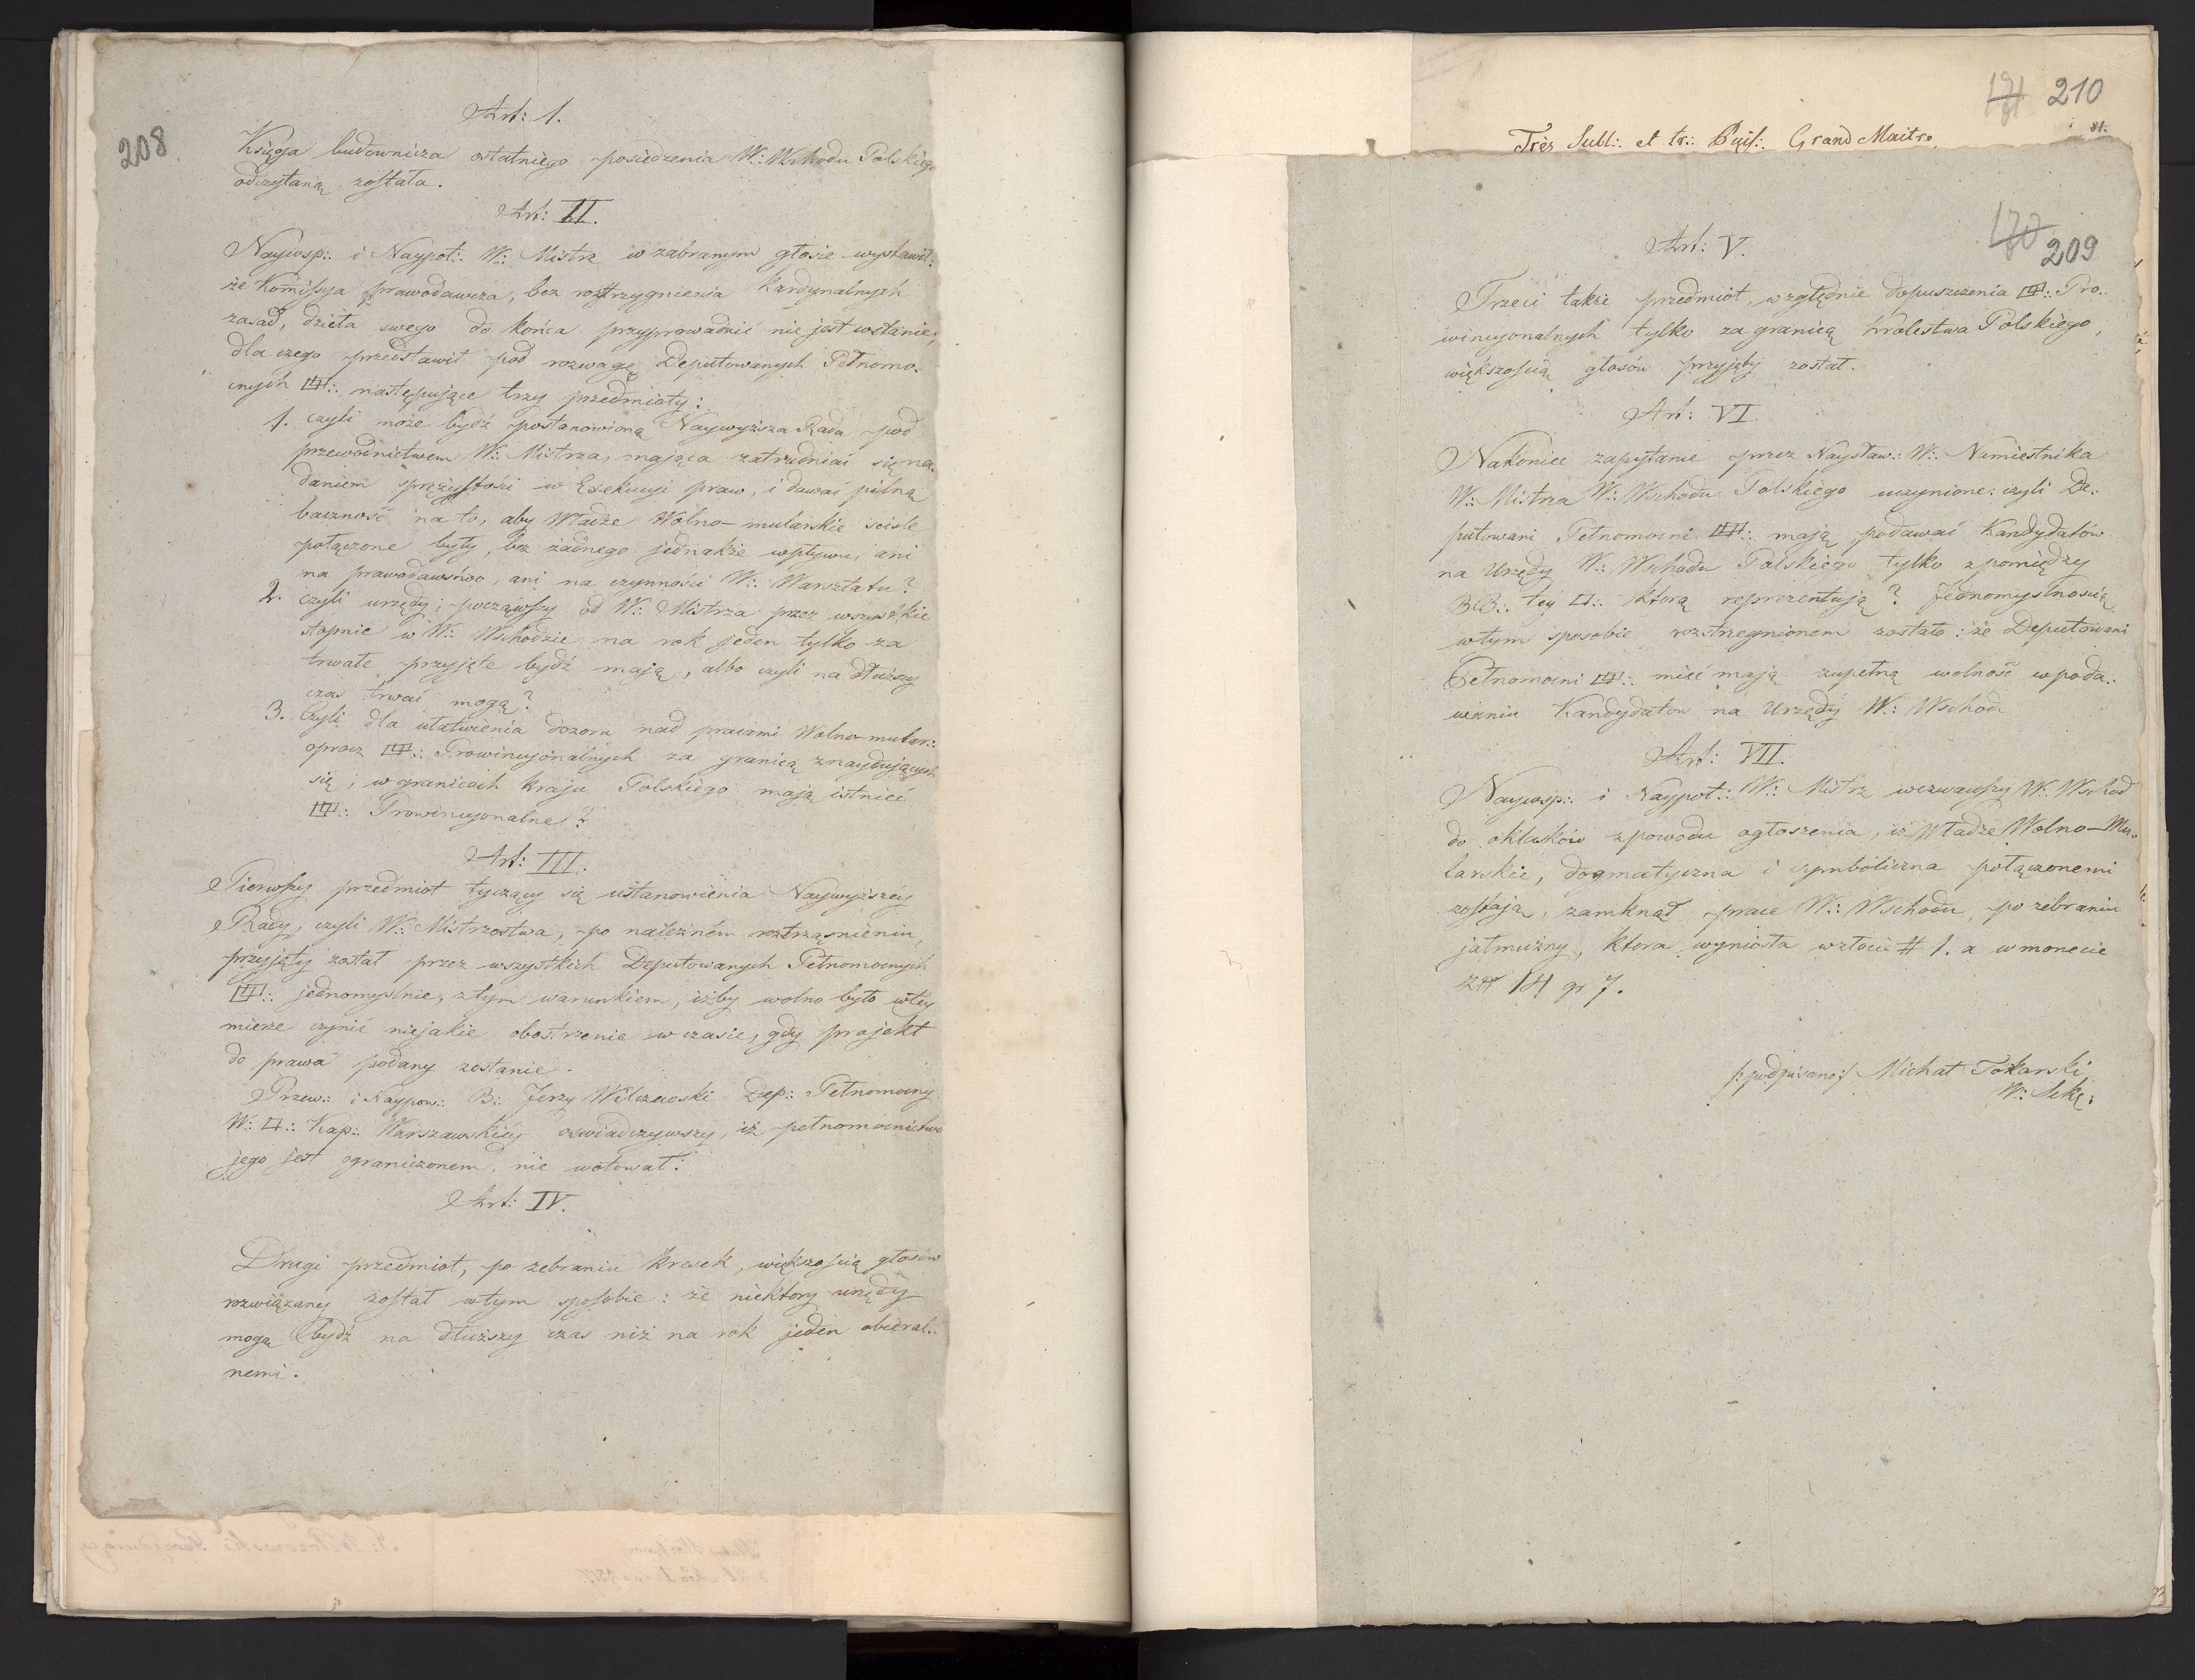 208
Art: 1.
Księga budownicza ostatniego posiedzenia W:. Wschodu Polskiego
odczytaną została.
Art: II.
Naywsp:. i Naypot:. W:. Mistrz w zabranym głosie wystawił:
że Komissya prawodawcza, bez rozstrzygnienia Kardynalnych
zasad, dzieła swego do końca przyprowadzić nie jest wstanie,
dla czego przedstawił pod rozwagę Deputowanych Pełnomo-
cnych następujące trzy przedmioty:
1. czyli może bydź postanowioną Naywyższa Rada pod
przewodnictwem W:. Mistrza, mająca zatrudniać się na-
daniem sprężystości w Exekucyi praw, i dawać pilną
baczność na to, aby Władze Wolno-mularskie ściśle
połączone były, bez żadnego jednakże wpływu, ani
na prawodawstwo, ani na czynności W:. Warsztatu?
2. czyli urzędy; począwszy od W:. Mistrza przez wszystkie
stopnie w W:. Wschodzie na rok jeden tylko za
trwałe przyjęte bydź mają, albo czyli na dłuższy
czas trwać mogą?
3. Czyli dla ułatwienia dozoru nad pracami Wolno-mular:.
oprocz Prowincyonalnych za granicą znaydujących
się, w granicach kraju Polskiego mają istnieć
Prowincyonalne?
Art: III.
Pierwszy przedmiot tyczący się ustanowienia Naywyższey
Rady, czyli W:. Mistrzostwa, po należném roztrząśnieniu,
przyjęty został przez wszystkich Deputowanych Pełnomocnych
jednomyslnie, z tym warunkiem, iżby wolno było wtey
mierze czynić niejakie obostrzenie w czasie, gdy projekt
do prawa podany zostanie.
Przew:. i Naypow:. B:. Jerzy Wilczewski Dep:. Pełnomocny
W:. □:. Kap:. Warszawskiey oswiadczywszy, iż pełnomocnictwo
jego jest ograniczonem, nie wotował.
Art: IV.
Drugi przedmiot, po zebraniu kresek, większością głosów
rozwiązany został wtym sposobie: że niektory urzędy
mogą bydź na dłuższy czas niż na rok jeden obieral-
nemi.
171 210
81.
Très Subl:. et tr:. Puis:. Grand Maitre
170
209
Art: V.
Trzeci także przedmiot, względnie dopuszczenia Pro-
wincyonalnych tylko za granicą Królestwa Polskiego,
większością głosów przyjęty został.
Art: VI.
Nakoniec zapytanie przez Naysław:. W:. Namiestnika
W:. Mistrza W:. Wschodu Polskiego uczynione: czyli De-
putowani Pełnomocni mają podawać Kandydatów
na Urzędy W:. Wschodu Polskiego tylko z pomiędzy
BB:. tey □:. którą reprezentują? Jednomyslnością
wtym sposobie rozstrzegnionem zostało: że Deputowani
Pełnomocni mieć mają zupełną wolność w poda-
waniu Kandydatow na Urzędy W:. Wschodu
Art: VII.
Naywsp:. i Naypot:. W:. Mistrz wezwawszy W:. Wschod
do oklasków z powodu ogłoszenia, iż Władze Wolno-Mu-
larskie, dogmatyczna i symboliczna połączonemi
zostają, zamknął prace W:. Wschodu, po zebraniu
jałmużny, ktora wyniosła wzłocie # 1. a w monecie
Zł 14 gr 7.
/:podpisano:/ Michał Tokarski
W:. Sekr: